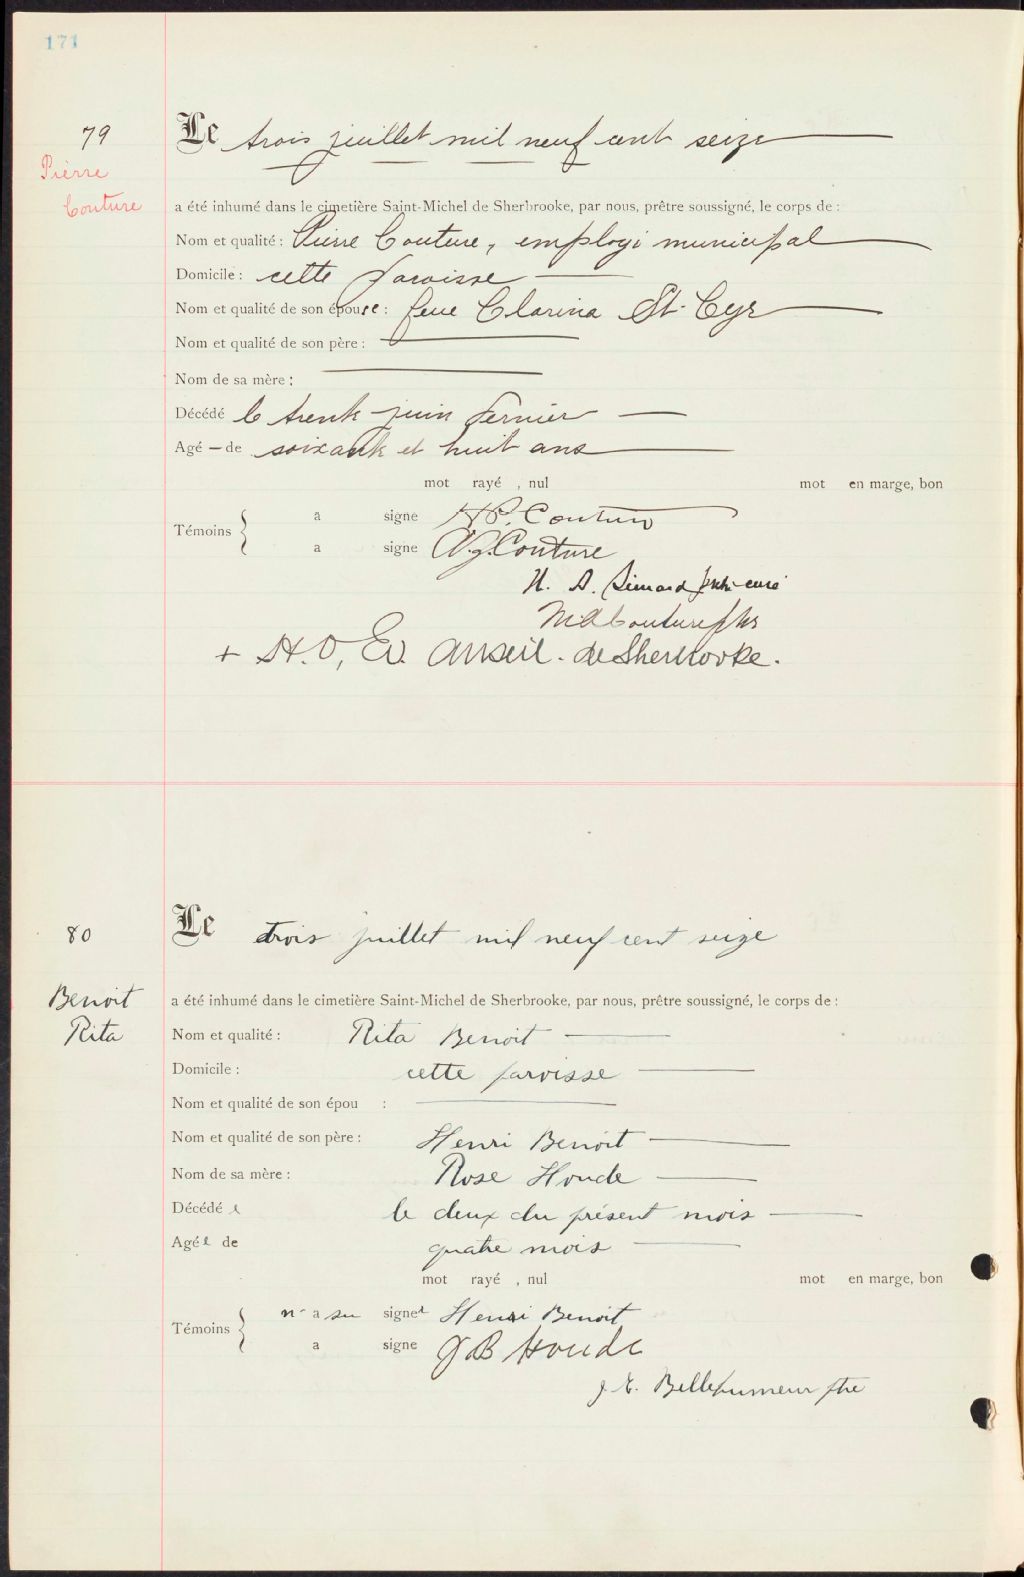 171
79
Pierre
Couture
Le trois juillet mil neuf cent seize
a été inhumé dans le cimetière Saint-Michel de Sherbrooke, par nous, prêtre soussigné, le corps de :
Nom et qualité : Pierre Couture, employé municipal
Domicile : cette paroisse
Nom et qualité de son épouse : feue Clarina St-Cyr
Nom et qualité de son père :
Nom de sa mère :
Décédé le trente juin dernier
Agé - de soixante et huit ans
mot rayé , nul mot en marge, bon
Témoins
a signe H.P. Couture
a signe A.J. Couture
H. A. Simard ptre-curé
Couture ptre
+ H. O, Ev. auxil. de Sherbrooke.
80
Benoit
Rita
Le trois juillet mil neuf cent seize
a été inhumé dans le cimetière Saint-Michel de Sherbrooke, par nous, prêtre soussigné, le corps de :
Nom et qualité : Rita Benoit
Domicile : cette paroisse
Nom et qualité de son épou :
Nom et qualité de son père : Henri Benoit
Nom de sa mère : Rose Houde
Décédé e le deux du présent mois
Agé e de quatre mois
mot rayé , nul mot en marge, bon
Témoins
n' a su signer Henri Benoit
a signe J B Houde
J. E. Bellehumeur ptre